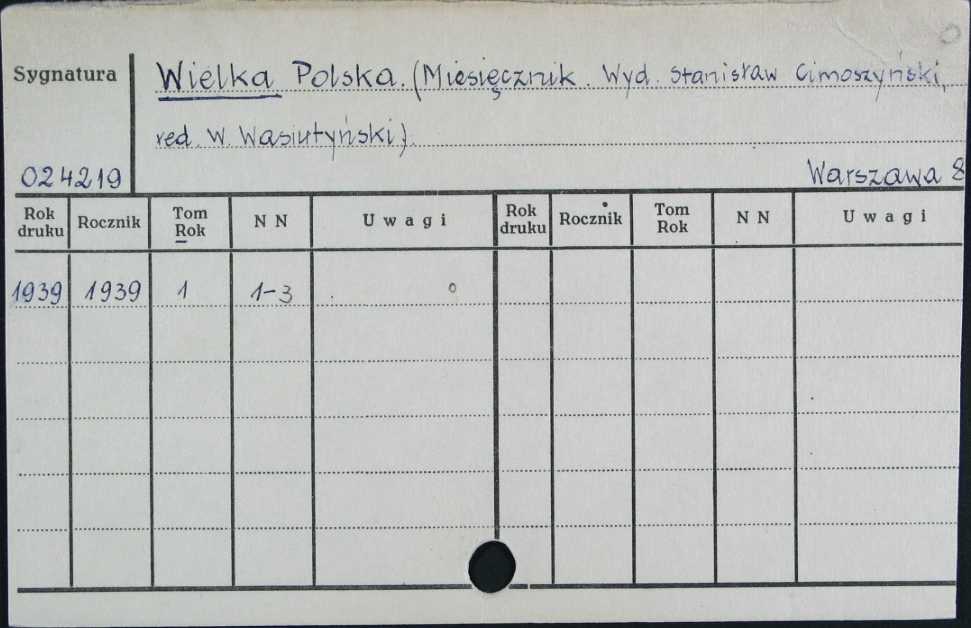 Sygnatura
Wielka Polska. (Miesięcznik. Wyd. Stanisław Cimoszyński,
red. W. Wasiutyński).
024219
Warszawa 8
Rok druku Rocznik Tom Rok N N Uwagi Rok druku Rocznik Tom Rok N N Uwagi
1939 1939 1 1-3